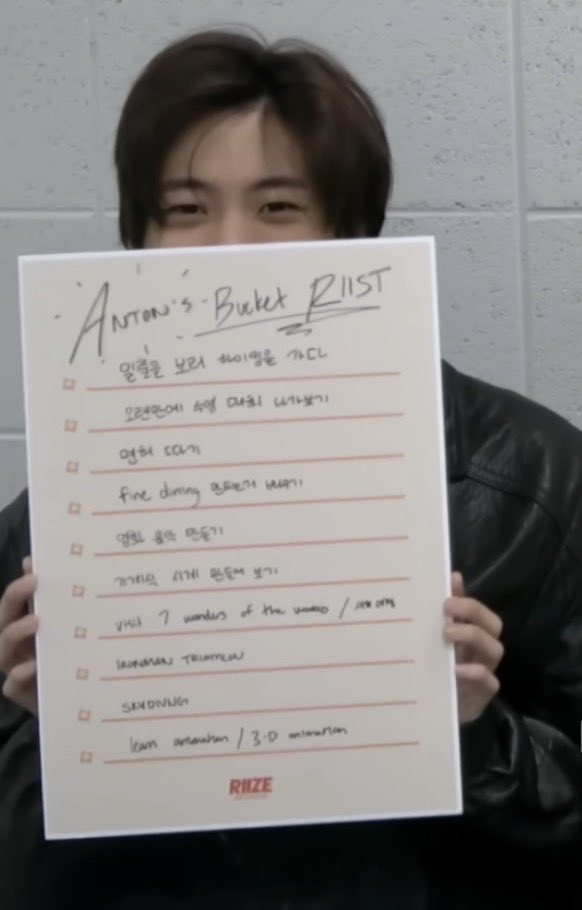 ANTON'S Bucket RIIST
일출을 보러 하이킹을 가다
오랜만에 수영 대회 나가보기
면허 따기
fine dining 만드는거 배우기
영화 음악 만들기
기계식 시계 만들어 보기
visit 7 wonders of the world / 세계 여행
IRONMAN TRIATHLON
SKYDIVING
learn animation / 3-D animation
RIIZE